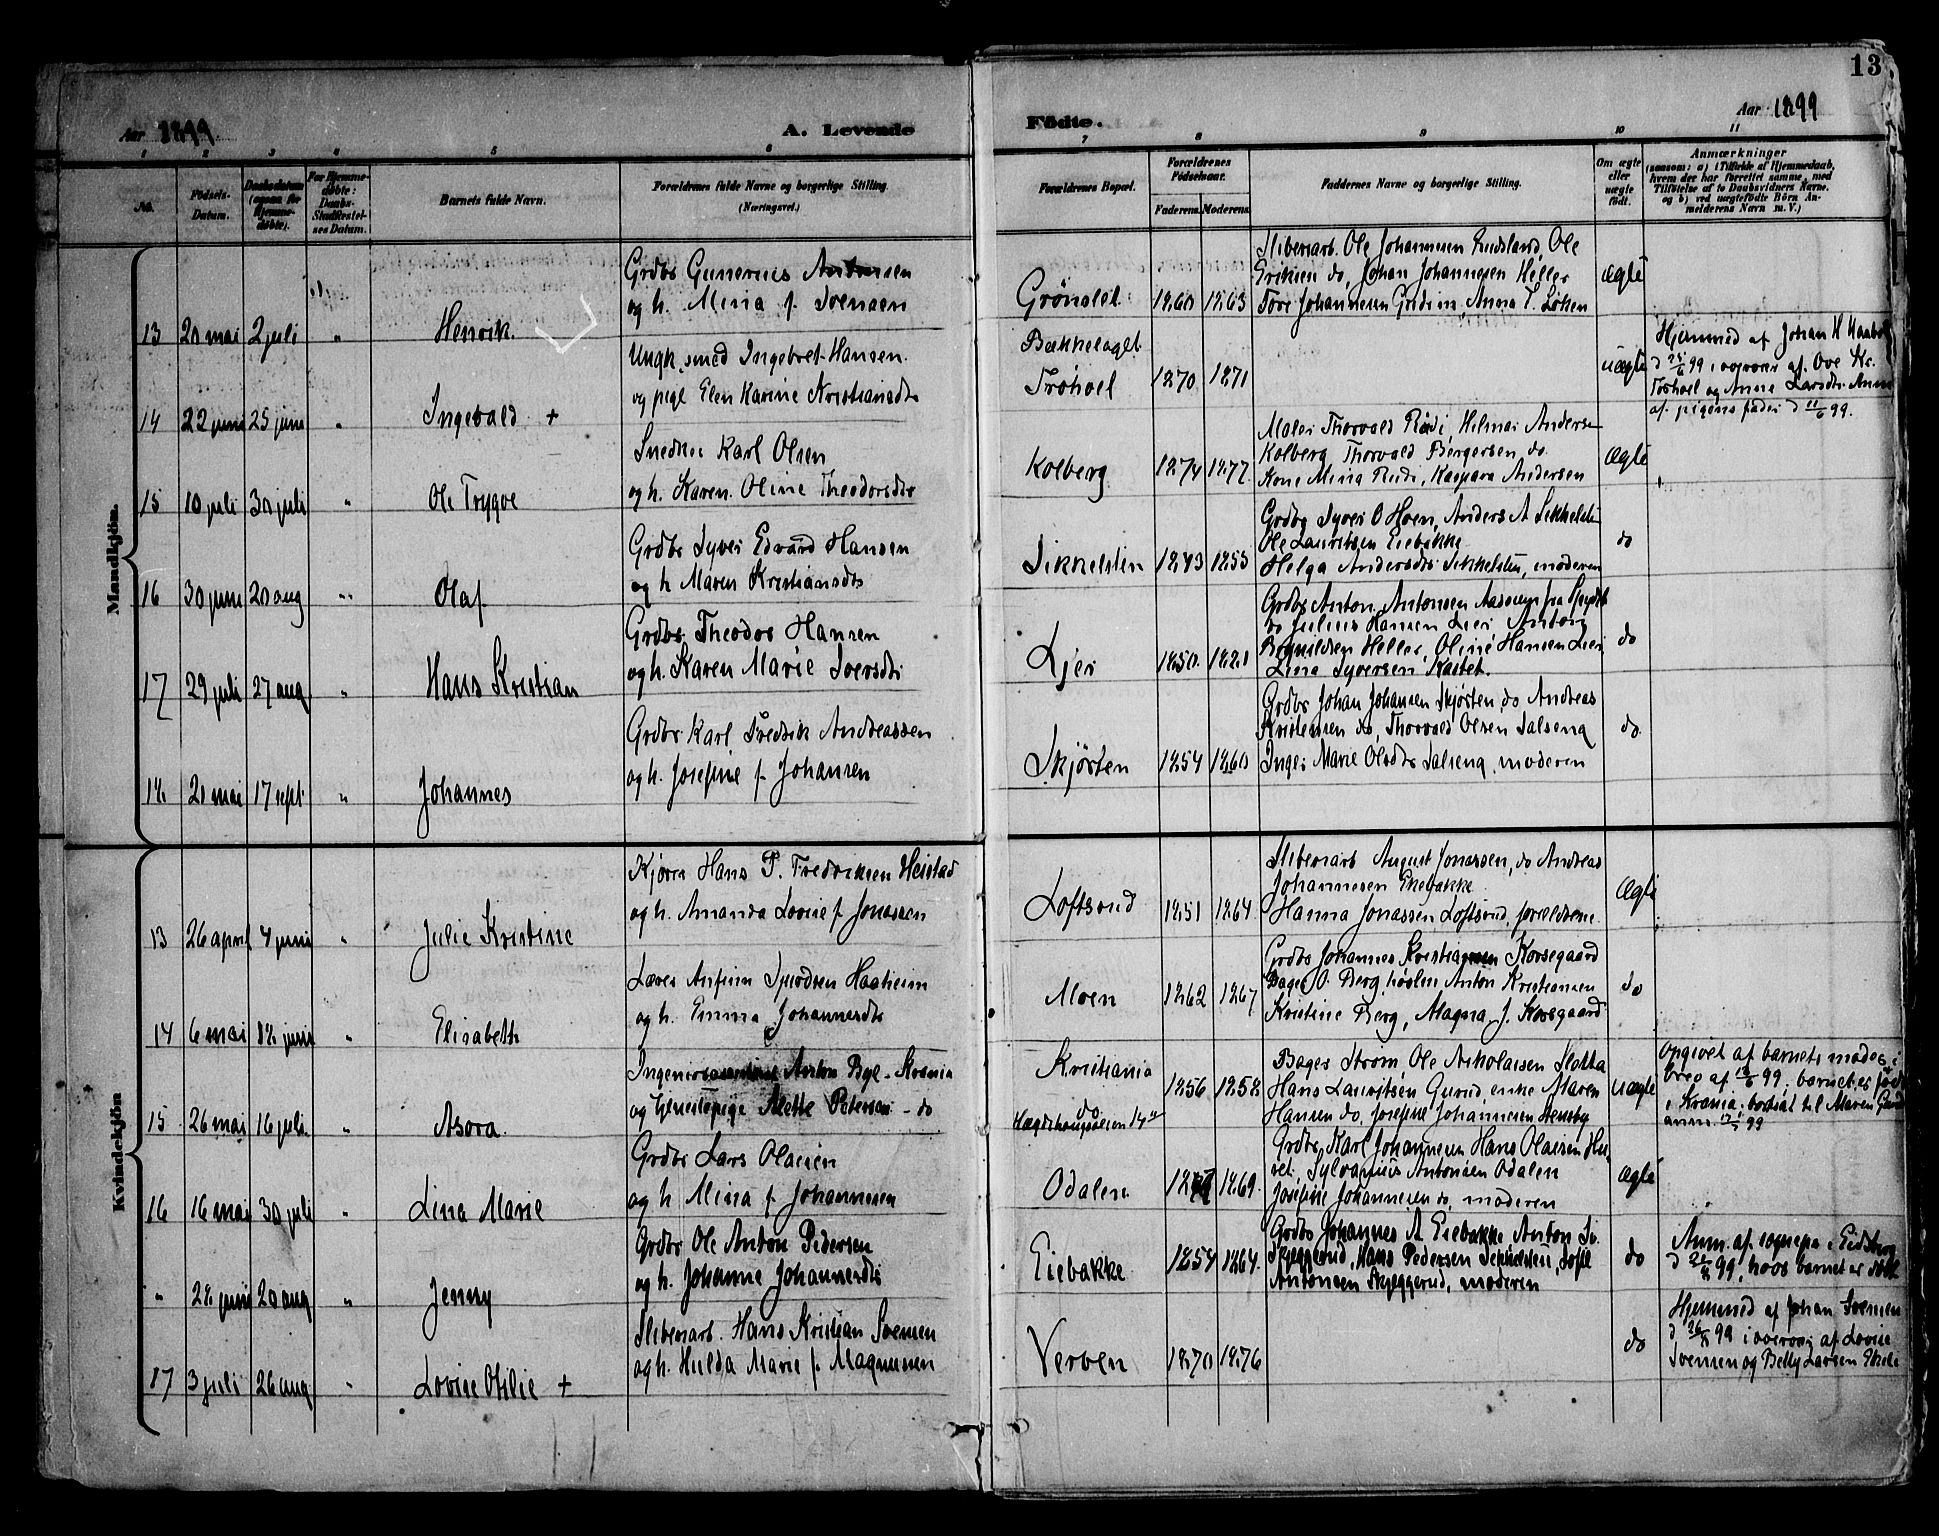 13
Aar 1899
A. Levende
Fødte.
Aar 1899
1 2 3 4 5 6 7 8 9 10 11
No.
Fødsels-
Datum.
Daabsdatum
(ogsaa for
Hjemme-
døbte).
For Hjemme-
døbte:
Daabs-
Stadfæstel-
ses Datum.
Barnets fulde Navn.
Forældrenes fulde Navne og borgerlige Stilling.
(Næringsvei.)
Forældrenes Bopæl.
Forældrenes
Fødselsaar.
Faderens. Moderens.
Faddernes Navne og borgerlige Stilling.
Om ægte
eller
uægte
født.
Anmærkninger
(saasom: a) i Tilfælde af Hjemmedaab,
hvem der har forrettet samme, med
Tilføielse af to Daabsvidners Navne.
og b) ved uægtefødte Børn An-
melderens Navn m. V.)
Mandkjøn.
13 20 mai 2 juli " Henrik.
Grdbr Gunerius Antonsen
og h. Mina f. Svensen
Grønslet 1860 1863
Sliberiarb. Ole Johannesen Ole
Eriksen do, Johan Johannesen Heller
Tore Johannesen Anna T. Løken
ægte
14 22 juni 25 juni " Ingevald +
Ungk. smed Ingebret Hansen
og pige Elen Karine Kristiansdtr
Bækkelaget
Trøhoel 1870 1871
uægte
Hjemmed af Johan H
d 25/6 99 i overvær af Ove Kr.
Trøhoel og Anne Larsdtr. Anm
af pigens fader d 11/6 99.
15 10 juli 30 juli " Ole Trygve
Snedker Karl Olsen
og h. Karen Oline Theodorsdtr
Kolberg 1874 1877
Maler Thorvald Rudi, Helmer Anderse
Kolberg Thorvald Bergersen do.
Kone Mina Rudi, Kaspara Andersen
ægte
16 30 juni 20 aug " Olaf
Grdbr Syver Edvard Hansen
og h Maren Kristiansdtr
Sikkelsten 1843 1855
Grdbr Syver O Hoen, Anders A Sikkelste
Ole Lauritsen Eiebakke
Helga Andersdtr Sikkelsten, moderen
do
17 29 juli 27 aug " Hans Kristian
Grdbr Theodor Hansen
og h. Karen Marie Iversdtr
Ljer 1850
Grdbr Anton Antonsen fra
do Julius Hansen Lier Anton
Heller, Oline Hansen Lier,
Lina Syversen Kastet.
do
18 20 mai 17 sept " Johannes
Grdbr Karl Fredrik Andreassen
og h. Josefine f. Johansen
Skjørten 1854 1860
Grdbr Johan Johansen Skjørten, do Andreas
Kristensen do, Thorvald Olsen Salseng
Inger Marie Olsdtr Salseng, moderen
do
Kvindekjøn
13 26 april 4 juni " Julie Kristine
Kjører Hans P. Fredriksen Heistad
og h. Amanda Lovise f. Jonassen
Loftsrud 1851 1864
Sliberiarb August Jonassen, do Andreas
Johannesen Ekebakke
Hanna Jonassen Loftsrud, forældrene
ægte
14 6 mai 18 juni " Elisabeth
Lærer Anfinn Haaheim
og h. Emma Johannesdtr
Moen 1862 1867
Grdbr Johannes Kristiansen Korsegaard
Bager O. Berg, Anton Kristiansen
Kristine Berg, Magna J. Korsegaard
do
15 26 mai 16 juli " Asora
Anton Byl - Krania
og tjenestepige Alette Petersen - do
Kristiania
do
1856 1858
Bager Strøm Ole Nikolaisen Slotta
Hans Lauritsen Gurud, enke Maren
Hansen do, Josefine Johannesen Stensby
uægte
Opgivet af barnets moder i
brev af 99. barnet er født
i Krania, bortsat til Maren
anm. 99
16 16 mai 30 juli " Lina Marie
Grdbr Lars Olaisen
og h Mina f. Johannesen
Odalen 1869
Grdbr, Karl Johannesen Hans Olaisen Hu-
set, Sylvanius Antonsen Odalen
Josefine Johannesen do, moderen
ægte
" 28 juni 20 aug " Jenny
Grdbr Ole Anton Pedersen
og h. Johanne Johannesdtr
Eiebakke 1854 1864
Grdbr Johannes A Eiebakke Anton Sv.
Skjeggerud, Hans Pedersen Sikkelsten, Sofie
Antonsen Skjeggerud, moderen
do
Anm. af sognepr i Eidsberg
d 99, hvor barnet er
17 3 juli 26 aug " Lovise Otilie +
Sliberiarb. Hans Kristian Svensen
og h. Hulda Marie f. Magnussen
Verven 1870 1876
do
Hjemmed af Johan Svensen
d 26/8 99 i overvær af Lovise
Svensen og Betty Larsen